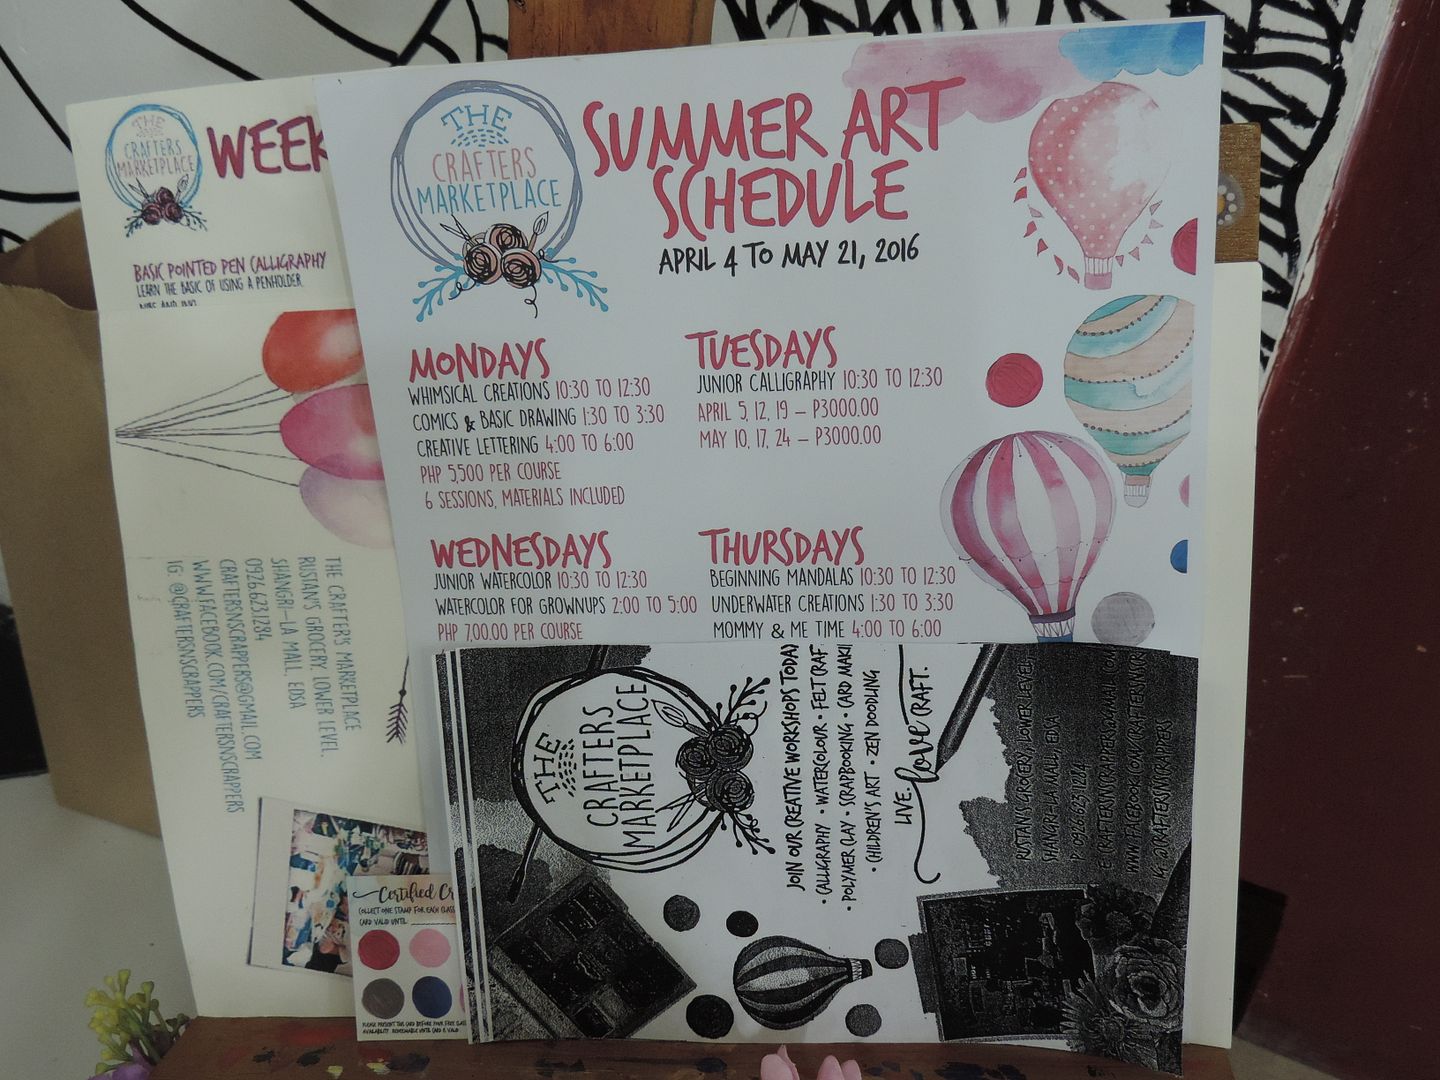 THE
CRAFTERS
MARKETPLACE
WEEK
BASIC POINTED PEN CALLIGRAPHY
LEARN THE BASIC OF USING A PENHOLDER,
NIBS AND INK!
THE
CRAFTERS
MARKETPLACE
SUMMER ART
SCHEDULE
APRIL 4 TO MAY 21, 2016
MONDAYS
WHIMSICAL CREATIONS 10:30 TO 12:30
COMICS & BASIC DRAWING 1:30 TO 3:30
CREATIVE LETTERING 4:00 TO 6:00
PHP 5,500 PER COURSE
6 SESSIONS, MATERIALS INCLUDED
TUESDAYS
JUNIOR CALLIGRAPHY 10:30 TO 12:30
APRIL 5, 12, 19 – P3000.00
MAY 10, 17, 24 – P3000.00
WEDNESDAYS
JUNIOR WATERCOLOR 10:30 TO 12:30
WATERCOLOR FOR GROWNUPS 2:00 TO 5:00
PHP 7,00.00 PER COURSE
THURSDAYS
BEGINNING MANDALAS 10:30 TO 12:30
UNDERWATER CREATIONS 1:30 TO 3:30
MOMMY & ME TIME 4:00 TO 6:00
THE CRAFTER'S MARKETPLACE
RUSTAN'S GROCERY LOWER LEVEL.
SHANGRI-LA MALL, EDSA
0926.623.1284
CRAFTERSNSCRAPPERS@GMAIL.COM
WWW.FACEBOOK.COM/CRAFTERSNSCRAPPERS
IG: @CRAFTERSNSCRAPPERS
Certified Cr
COLLECT ONE STAMP FOR EACH CLASS
CARD VALID UNTIL
PLEASE PRESENT THE CARD BEFORE YOUR FREE CLASS
AVAILABILITY. REDEEMABLE UNTIL CARD IS VALID
THE
CRAFTERS
MARKETPLACE
JOIN OUR CREATIVE WORKSHOPS TODAY
• CALLIGRAPHY • WATERCOLOUR • FELT CRAF
• POLYMER CLAY • SCRAPBOOKING • CARD MAKI
• CHILDREN'S ART • ZEN DOODLING
LIVE. love CRAFT.
RUSTAN'S GROCERY, LOWER LEVEL,
SHANGRI-LA MALL, EDSA
P: 0926.623.1284
E: CRAFTERSNSCRAPPERS@GMAIL.COM
WWW.FACEBOOK.COM/CRAFTERSNSCR
@CRAFTERSNSCRAPPERS